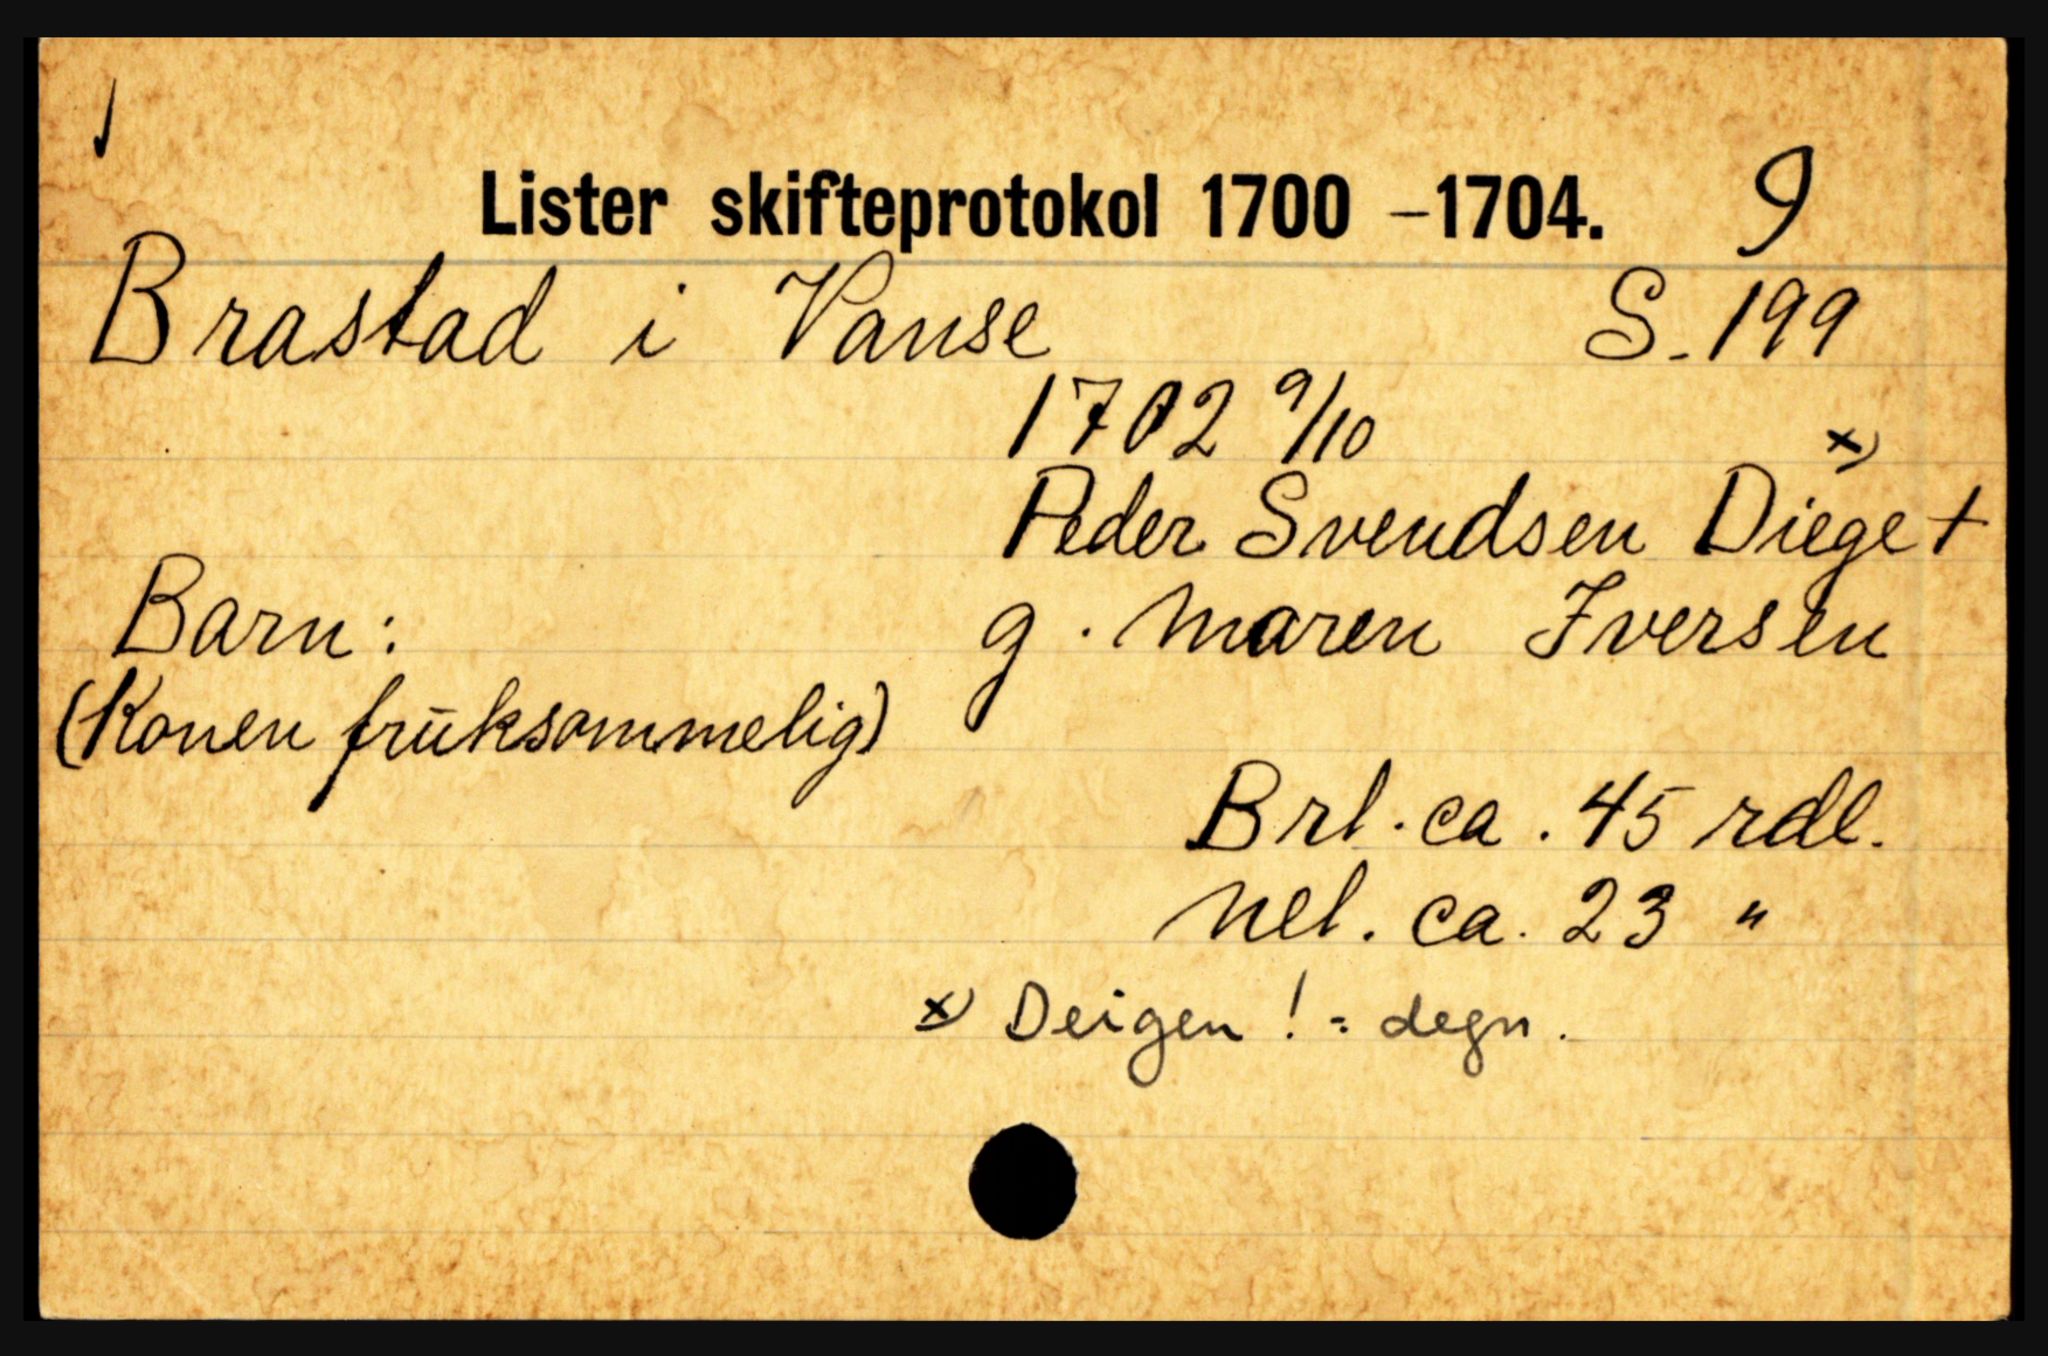 Lister skifteprotokol 1700 – 1704. 9
Brastad i Vanse S. 199
1702 9/10
x)
Peder Svendsen Diege +
Barn: g. Maren Iversen
(Konen frūksommelig)
Brl. ca. 45 rdl.
Nel. ca. 23 "
x) Deigen ! = degn.